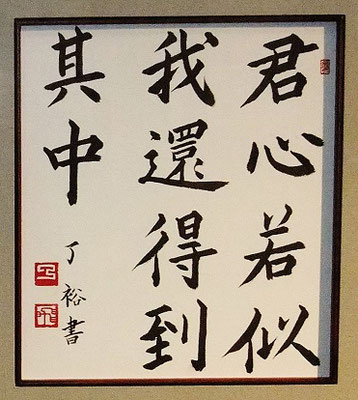 君心若似
我還得到
其中
丁裕書